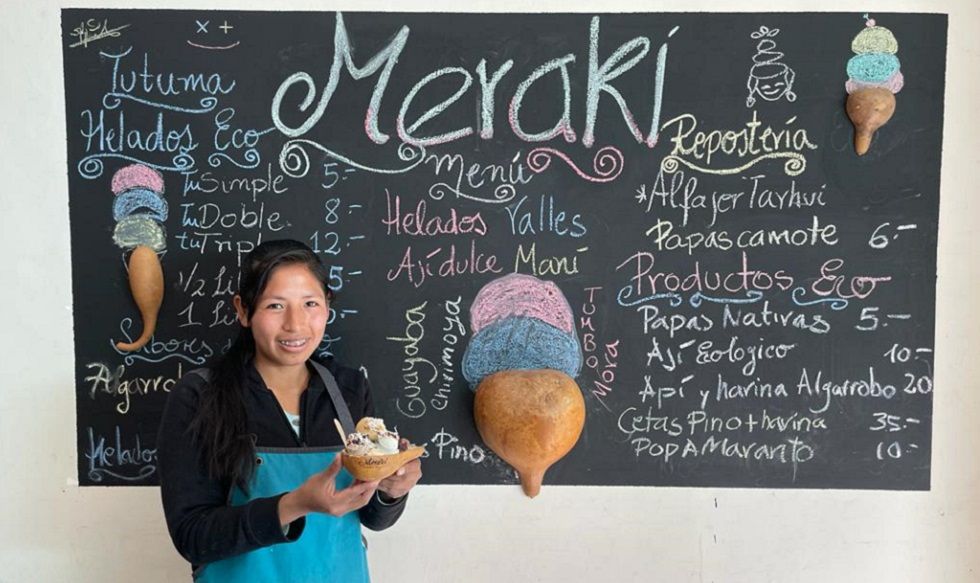 Meraki
Tutuma
Helados Eco
tuSimple 5.-
tuDoble 8.-
tuTripl 12.-
1/2 Li 5.-
1 Lit
Sabores
Algarro
Helado
Menú
Helados Valles
Ají dulce Maní
Guayaba
chirimoya
TUMBO
Mora
Pino
Repostería
*Alfajor Tarhui
Papascamote 6.-
Productos Eco
Papas Nativas 5.-
Ají Eologico 10.-
Apí y harina Algarrobo 20
Cetas Pino+harina 35.-
PopAMaranto 10.-
Meraki